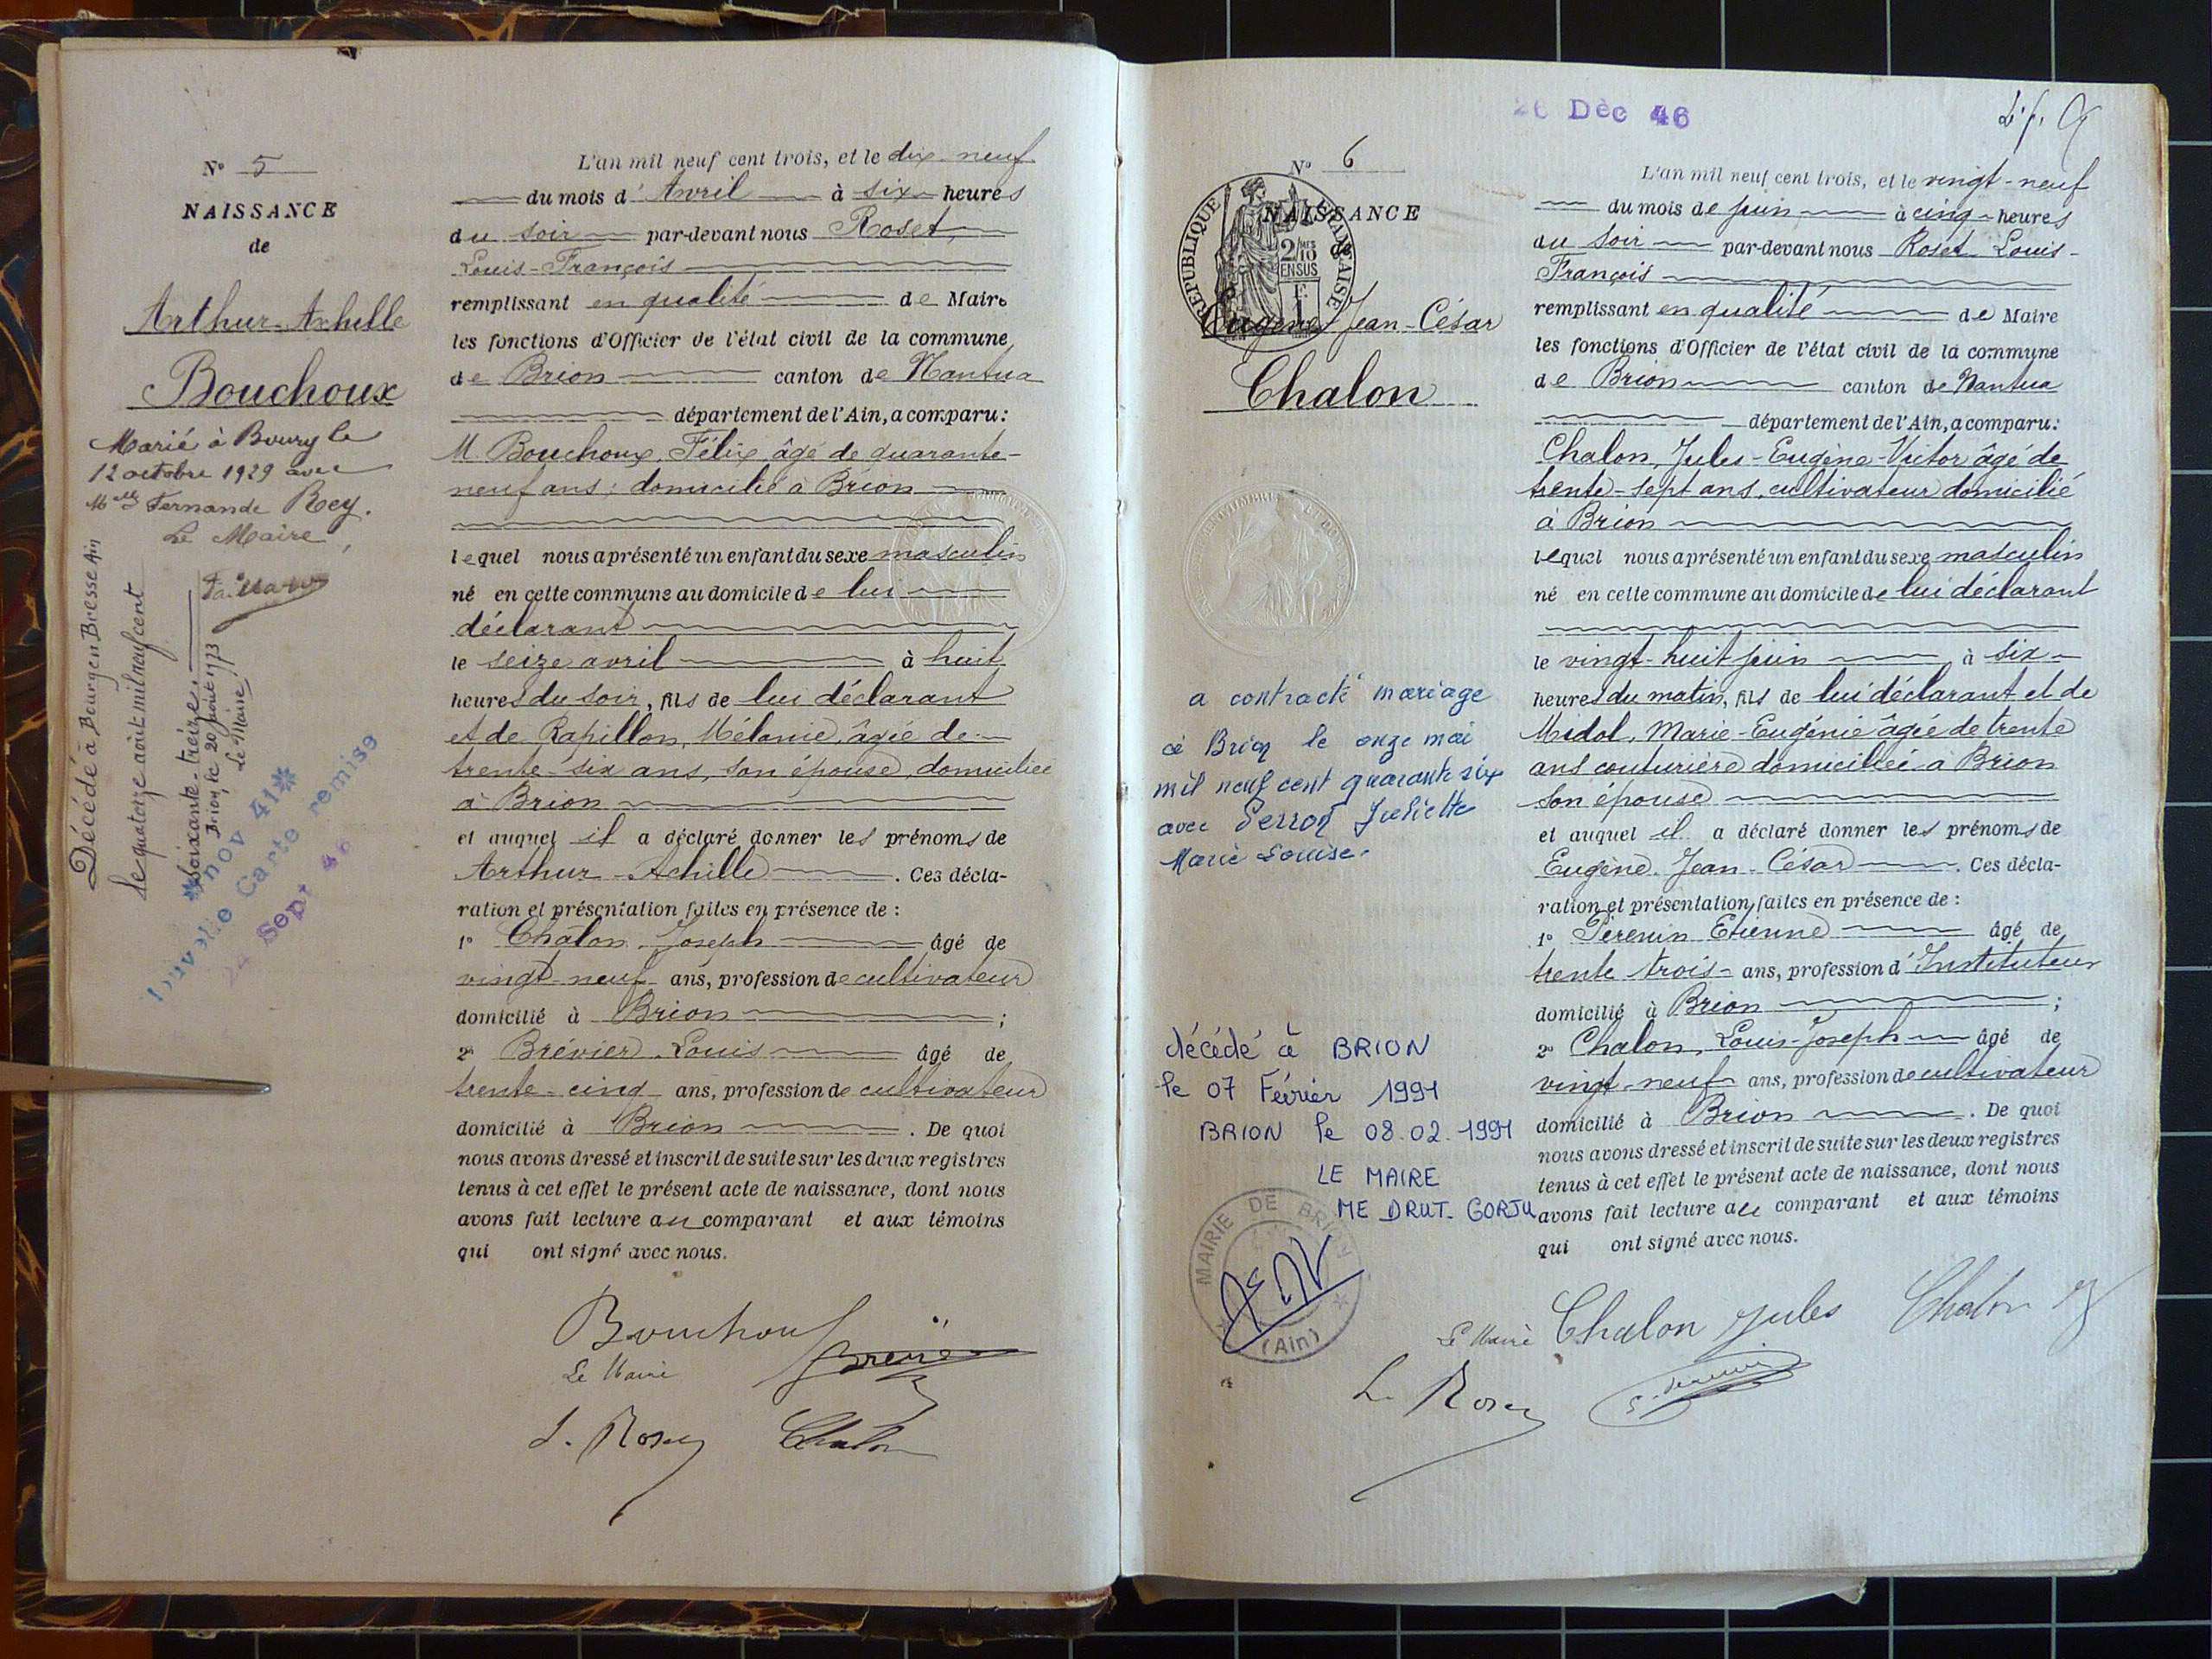 N° 5
NAISSANCE
de
Arthur-Achille
Bouchoux
Marié à Bourg le
12 octobre 1929 avec
Melle Fernande Rey.
Le Maire,
Décédé à Bourg en Bresse Ain
le quatorze août mil neuf cent
soixante-treize.
Brion, le 20 août 1973
Le Maire
nov 41
Nouvelle Carte remise
24 Sept 46
L'an mil neuf cent trois, et le dix-neuf
du mois d'Avril à six heures
du soir par-devant nous Roset,
Louis-François
remplissant en qualité de Maire
les fonctions d'Officier de l'état civil de la commune
de Brion canton de Nantua
département de l'Ain, a comparu:
M. Bouchoux, Félix âgé de quarante-
neuf ans, domicilié à Brion
lequel nous a présenté un enfant du sexe masculin
né en cette commune au domicile de lui
déclarant
le seize avril à huit
heures du soir, fils de lui déclarant
et de Rapillon, Mélanie, âgée de
trente-six ans, son épouse, domiciliée
à Brion
et auquel il a déclaré donner les prénoms de
Arthur-Achille. Ces décla-
ration et présentation faites en présence de :
1° Chalon, Joseph âgé de
vingt-neuf ans, profession de cultivateur
domicilié à Brion ;
2° Brévier Louis âgé de
trente-cinq ans, profession de cultivateur
domicilié à Brion. De quoi
nous avons dressé et inscrit de suite sur les deux registres
tenus à cet effet le présent acte de naissance, dont nous
avons fait lecture au comparant et aux témoins
qui ont signé avec nous.
Bouchoux
Le Maire
L. Roset Chalon
26 Déc 46
N° 6
NAISSANCE
de
RÉPUBLIQUE FRANÇAISE
2/10 MES
EN SUS
1 F
Eugène Jean-César
Chalon
a contracté mariage
à Brion le onze mai
mil neuf cent quarante six
avec Perron Juliette
Marie Louise.
décédé à BRION
le 07 Février 1991
BRION le 08.02.1991
LE MAIRE
ME DRUT-GORJU
MAIRIE DE BRION
(Ain)
L'an mil neuf cent trois, et le vingt-neuf
du mois de juin à cinq heures
du soir par-devant nous Roset Louis-
François
remplissant en qualité de Maire
les fonctions d'Officier de l'état civil de la commune
de Brion canton de Nantua
département de l'Ain, a comparu:
Chalon, Jules-Eugène-Victor âgé de
trente-sept ans, cultivateur domicilié
à Brion
lequel nous a présenté un enfant du sexe masculin
né en cette commune au domicile de lui déclarant
le vingt-huit juin à six
heures du matin, fils de lui déclarant et de
Midol, Marie-Eugénie âgée de trente
ans couturière domiciliée à Brion
son épouse
et auquel il a déclaré donner les prénoms de
Eugène-Jean-César. Ces décla-
ration et présentation faites en présence de :
1° Perenin Etienne âgé de
trente trois ans, profession d'Instituteur
domicilié à Brion ;
2° Chalon, Louis-Joseph âgé de
vingt-neuf ans, profession de cultivateur
domicilié à Brion. De quoi
nous avons dressé et inscrit de suite sur les deux registres
tenus à cet effet le présent acte de naissance, dont nous
avons fait lecture au comparant et aux témoins
qui ont signé avec nous.
Le Maire Chalon Jules Chalon
L. Roset